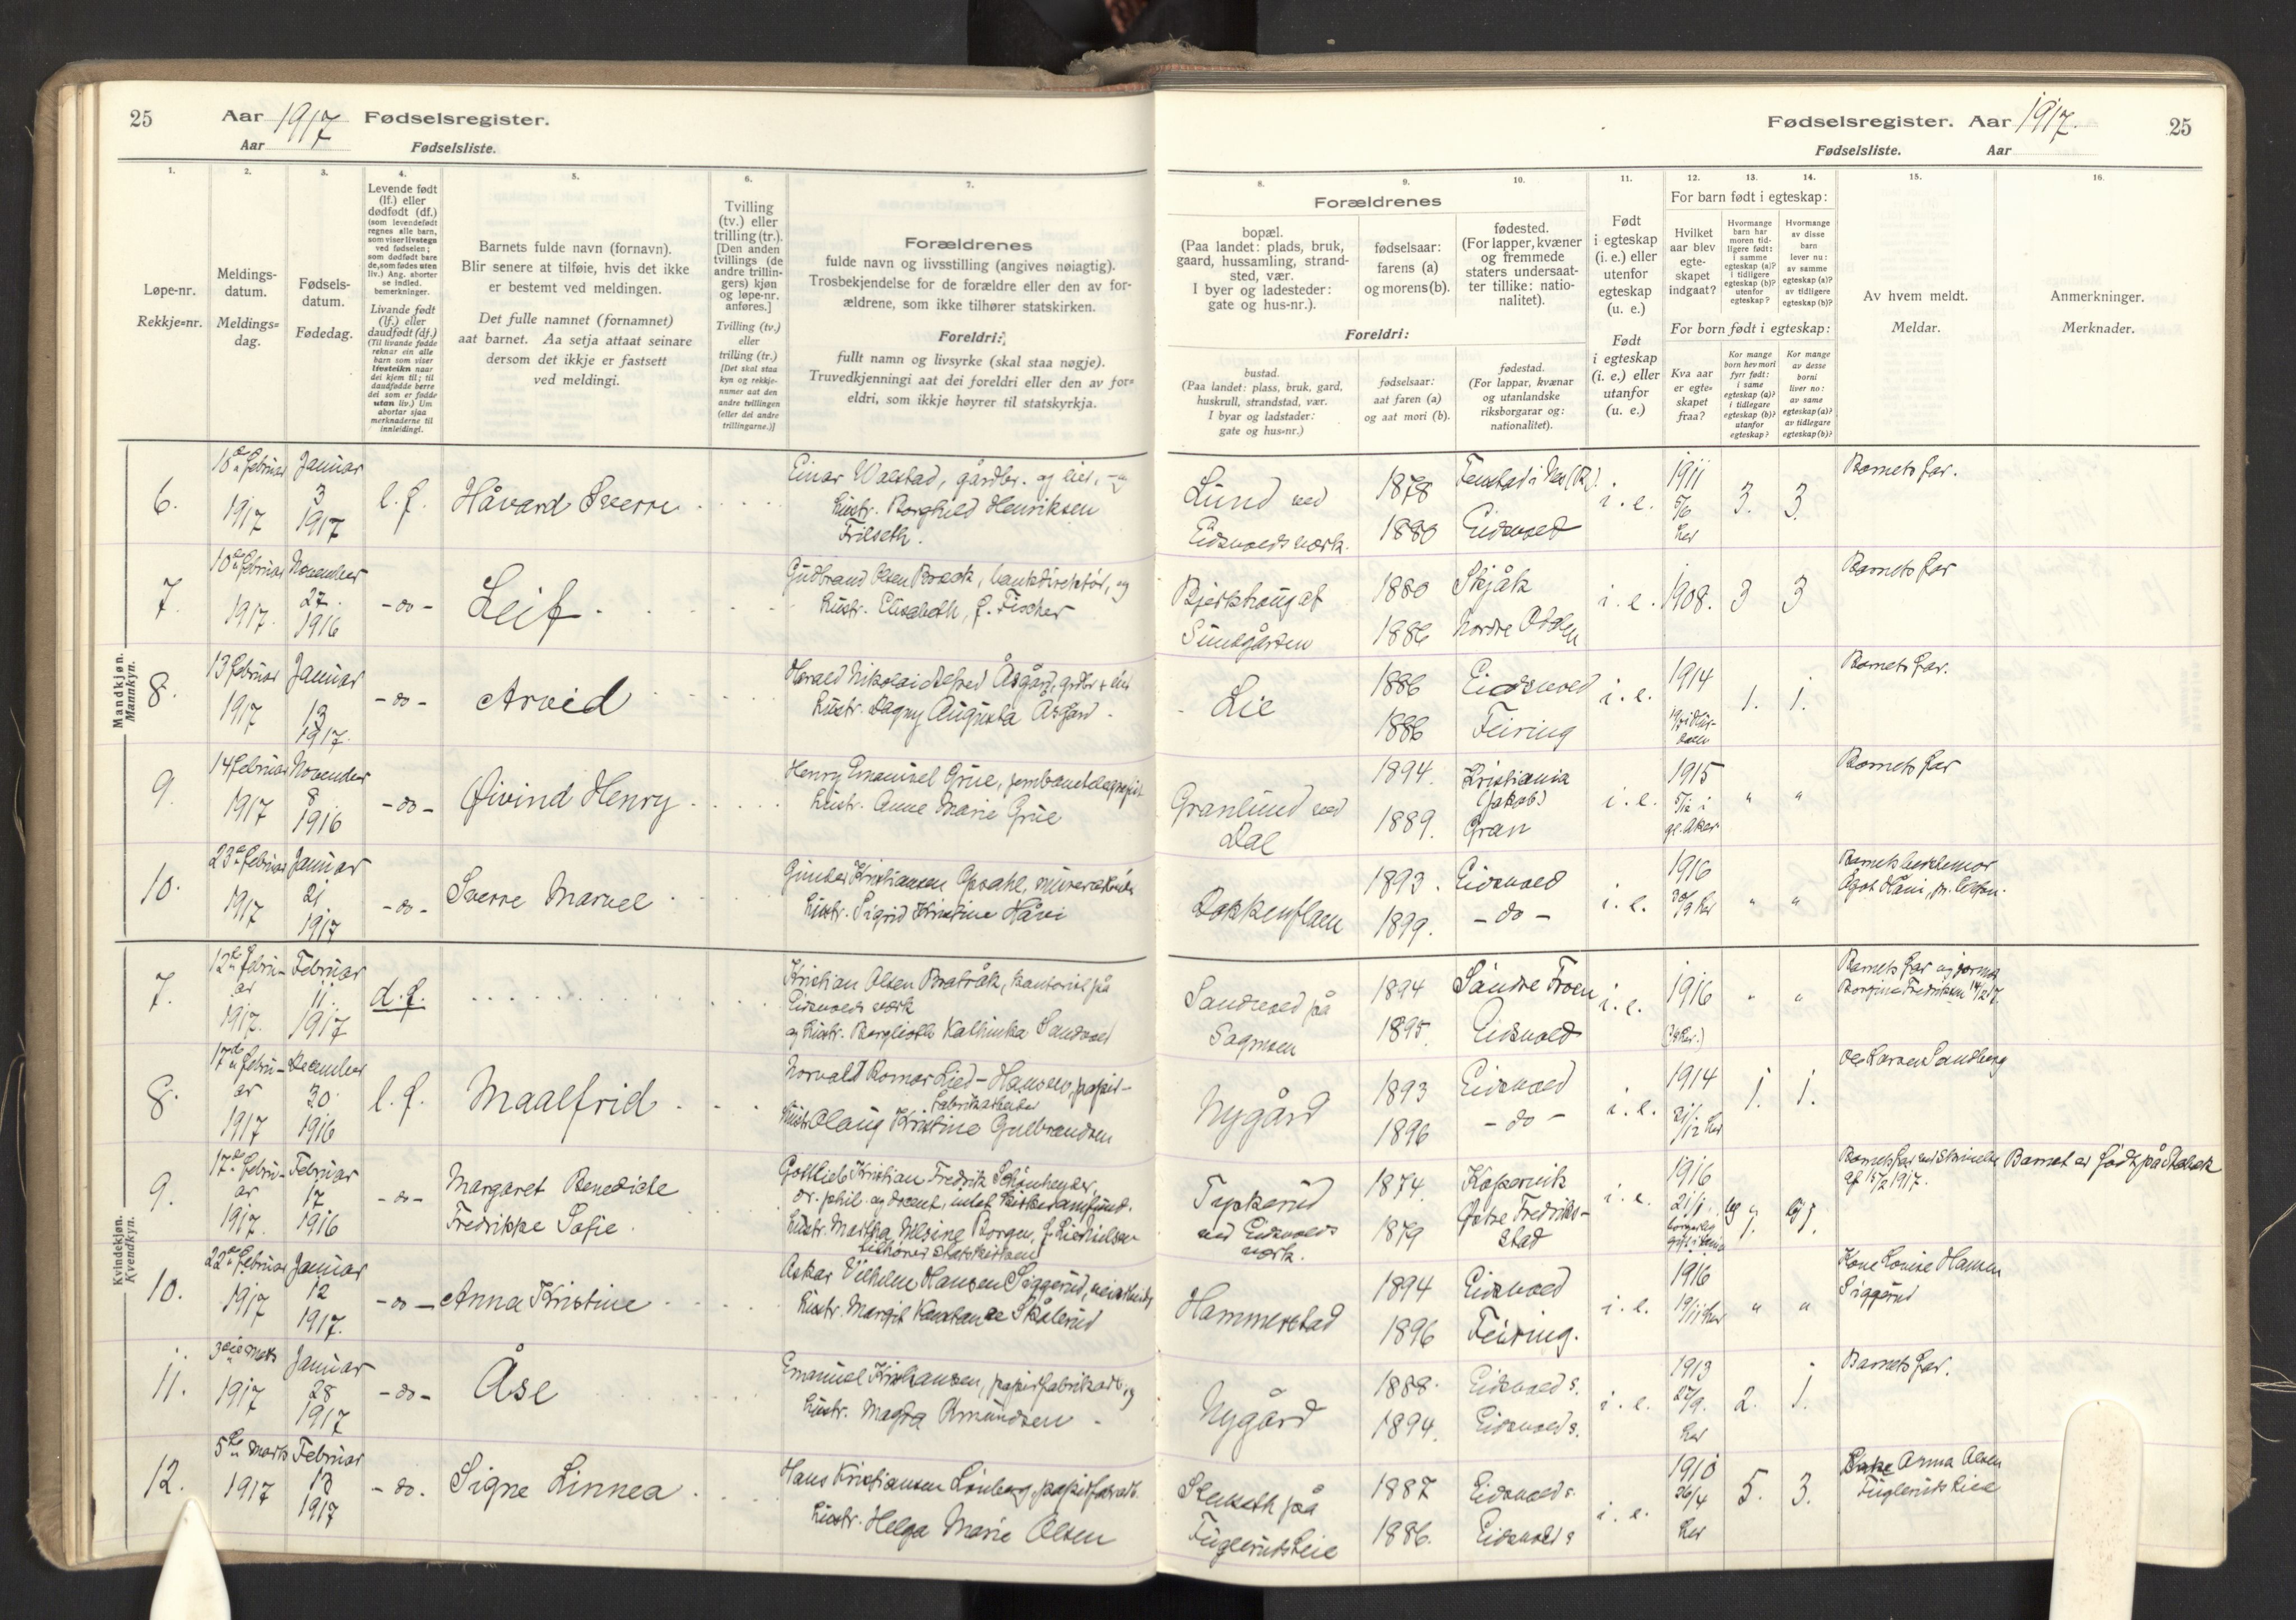 25
Aar 1917 Fødselsregister.
Aar
Fødselsliste.
1.
2.
3.
4.
5.
6.
7.
Løpe-nr.
Rekkje=nr.
Meldings-
datum.
Meldings=
dag.
Fødsels-
datum.
Fødedag.
Levende født
(lf.) eller
dødfødt (df.)
(som levendefødt
regnes alle barn,
som viser livstegn
ved fødselen;
som dødfødt bare
de, som fødes uten
liv.) Ang. aborter
se indled.
bemerkninger.
Livande født
(lf.) eller
daudfødt (df.)
(Til livande fødde
reknar ein alle
barn som viser
livsteikn naar
dei kjem til; til
daudfødde berre
dei som er fødde
utan liv.) Um
abortar sjaa
merknaderne til
innleidingi.
Barnets fulde navn (fornavn).
Blir senere at tilføie, hvis det ikke
er bestemt ved meldingen.
Det fulle namnet (fornamnet)
aat barnet. Aa setja attaat seinare
dersom det ikkje er fastsett
ved meldingi.
Tvilling
(tv.) eller
trilling (tr.).
[Den anden
tvillings (de
andre trillin-
gers) kjøn
og løpe-nr.
anføres.]
Tvilling (tv.)
eller
trilling (tr.)
[Det skal staa
kyn og rekkje-
numer aat den
andre tvillingen
(eller dei andre
trillingarne.)]
Forældrenes
fulde navn og livsstilling (angives nøiagtig).
Trosbekjendelse for de forældre eller den av for-
ældrene, som ikke tilhører statskirken.
Foreldri:
fullt namn og livsyrke (skal staa nøgje).
Truvedkjenningi aat dei foreldri eller den av for=
eldri, som ikkje høyrer til statskyrkja.
Mandkjøn.
Mannkyn.
6.
Februar
1917
Januar
3
1917
l. f.
Håvard Sverre
Einar Walstad, gårdbr. og eier, og
hustr. Borghild Henriksen
Frilseth.
7.
10de Februar
1917.
November
27.
1916
- do -
Leif
Gudbrand Olsen Bræk, bankdirektør, og
hustr. Elisabeth, f. Fischer
8.
13 Februar
1917
Januar
13
1917.
- do -
Arvid
Harald Nikolai Alfred Åsgård, grdbr + eier
hustr. Dagny Augusta Asgård
9.
14 Februar
1917
November
8
1916
- do -
Øivind Henry
Henry Emanuel Grue,
hustr. Anne Marie Grue
10.
23de Februar
1917
Januar
21.
1917
- do -
Sverre Marvel
Gunder Kristiansen Opsahl,
hustr. Sigrid Kristine Håvi
Kvindekjøn.
Kvendkyn.
7.
12te Febru-
ar
1917.
Februar
11.
1917
d. f.
Kristian Olsen Bratråk, kontorist på
Eidsvolds værk
og hustr. Borgliotte Kathinka Sandvold
8.
17de Febru-
ar
1917
December
30.
1916
l. f.
Maalfrid
Norvald Romar Lied-Hansen, papir-
fabrikarbeider
hustr Olaug Kristine Gulbrandsen
9.
17de Febru-
ar
1917.
Februar
17
1916
- do -
Margaret Benedicte
Fredrikke Sofie
Gottlieb Kristian Fredrik Schønheyder,
dr. phil. og docent, utlat kirkesamfund.
hustr. Martha Nelsine Borgen, f. Lie Nielsen
tilhører statskirken
10.
22de Februar
1917
Januar
12
1917.
- do -
Anna Kristine
Oskar Vilhelm Hansen Siggerud,
hustr. Margit Konstanse Skålerud
11.
3die Mars
1917
Januar
28
1917
- do -
Åse
Emanuel Kristiansen, papirfabrikarb., og
hustr. Magda Amundsen
12.
5te Marts
1917
Februar
13
1917
- do.
Signe Linnea
Hans Kristiansen Lønberg, papirfabrarb.
hustr. Helga Marie Olsen
Fødselsregister. Aar 1917.
25
Fødselsliste. Aar
8.
9.
10.
11.
12.
13.
14.
15.
16.
Forældrenes
bopæl.
(Paa landet: plads, bruk,
gaard, hussamling, strand-
sted, vær.
I byer og ladesteder:
gate og hus-nr.).
fødselsaar:
farens (a)
og morens (b).
fødested.
(For lapper, kvæner
og fremmede
staters undersaat-
ter tillike: natio-
nalitet).
Foreldri:
bustad.
(Paa landet: plass, bruk, gard,
huskrull, strandstad, vær.
I byar og ladstader:
gate og hus=nr.)
fødselsaar:
aat faren (a)
og aat mori (b).
fødestad.
(For lappar, kvænar
og utanlandske
riksborgarar og:
nationalitet).
Født
i egteskap
(i. e.) eller
utenfor
egteskap
(u. e.)
Født
i egteskap
(i. e.) eller
utanfor
(u. e.)
For barn født i egteskap:
Hvilket
aar blev
egte-
skapet
indgaat?
Hvormange
barn har
moren tid-
ligere født:
i samme
egteskap (a)?
i tidligere
egteskap (b)?
utenfor
egteskap?
Hvormange
av disse
barn
lever nu:
av samme
egteskap (a)?
av tidligere
egteskap (b)?
For born født i egteskap:
Kva aar
er egte=
skapet
fraa?
Kor mange
born hev mori
fyrr født:
i same
egteskap (a)?
i tidlegare
egteskap (b)?
utanfor
egteskap?
Kor mange
av desse
borni
liver no:
av same
egteskap (a)?
av tidlegare
egteskap (b)?
Av hvem meldt.
Meldar.
Anmerkninger.
Merknader.
Lund ved
Eidsvolds værk.
1878
1880
Eidsvold
i. e.
1911
5/6
her
3.
3.
Barnets far.
Bjerkhoug af
Sundgården
1880
1886
Skjåk
Nordre Odalen
i. e.
1908.
3
3
Barnets far
Lie
1886
1886
Eidsvold
Feiring
i. e.
1914
1.
1.
Barnets far.
Granlund ved
Dal
1894.
1889.
Kristiania
(Jakob)
Gran
i. e.
1915
5/12 i
gl. Aker
"
"
Barnets far
Dokkenflaen
1893.
1899.
Eidsvold
- do -
i. e.
1916
30/9 her
"
"
Barnets bestemor
Ågot Håvi, pr. telefon.
Sandvold på
Sagmoen
1894
1895.
Søndre Froen
Eidsvold
i. e.
1916
"
"
Barnets far og jormor
Borgine Fredriksen 14/2 17.
Nygård
1893
1896
Eidsvold
- do -
i. e.
1914
21/12 her
1.
1.
Ole Larsen Sandberg
Typkerud
ved Eidsvolds
værk.
1874.
1879
Kopervik
Østre Fredrik-
stad
i. e.
1916
21/1
borgerlig
Barnets far ved skrivelse
af 15/2 1917.
Barnet er født på Stabæk
Hammerstad
1894
1896
Eidsvold
Feiring.
i. e.
1916
19/11 her
"
"
Kone Lovise Hansen
Siggerud
Nygård
1888.
1894.
Eidsvold s.
Eidsvold s.
i. e.
1913
27/9.
her
2.
1.
Barnets far.
Stenseth på
Fuglerudseie
1887
1886.
Eidsvold s.
Eidsvold s
i. e.
1910
26/4
her
5.
3.
Anna Olsen
Fuglerudseie